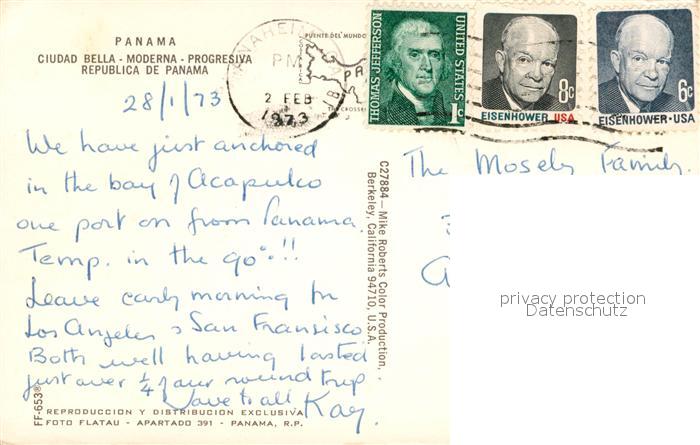 PANAMA
CIUDAD BELLA - MODERNA - PROGRESIVA
REPUBLICA DE PANAMA
28/1/73
We have just anchored
in the bay of Acapulco
one port on from Panama.
Temp. in the 90°s!!
Leave early morning for
Los Angeles & San Fransisco
Both well having lasted
just over ¼ of our round trip.
Love to all Kay.
REPRODUCCION Y DISTRIBUCION EXCLUSIVA
FOTO FLATAU - APARTADO 391 - PANAMA, R.P.
FF-653®
C27884 — Mike Roberts Color Production,
Berkeley, California 94710, U.S.A.
PUENTE DEL MUNDO
ANAHEIM
PM
2 FEB
1973
THOMAS JEFFERSON
UNITED STATES
1c
8c
EISENHOWER USA
6c
EISENHOWER·USA
The Mosely Family.
privacy protection
Datenschutz